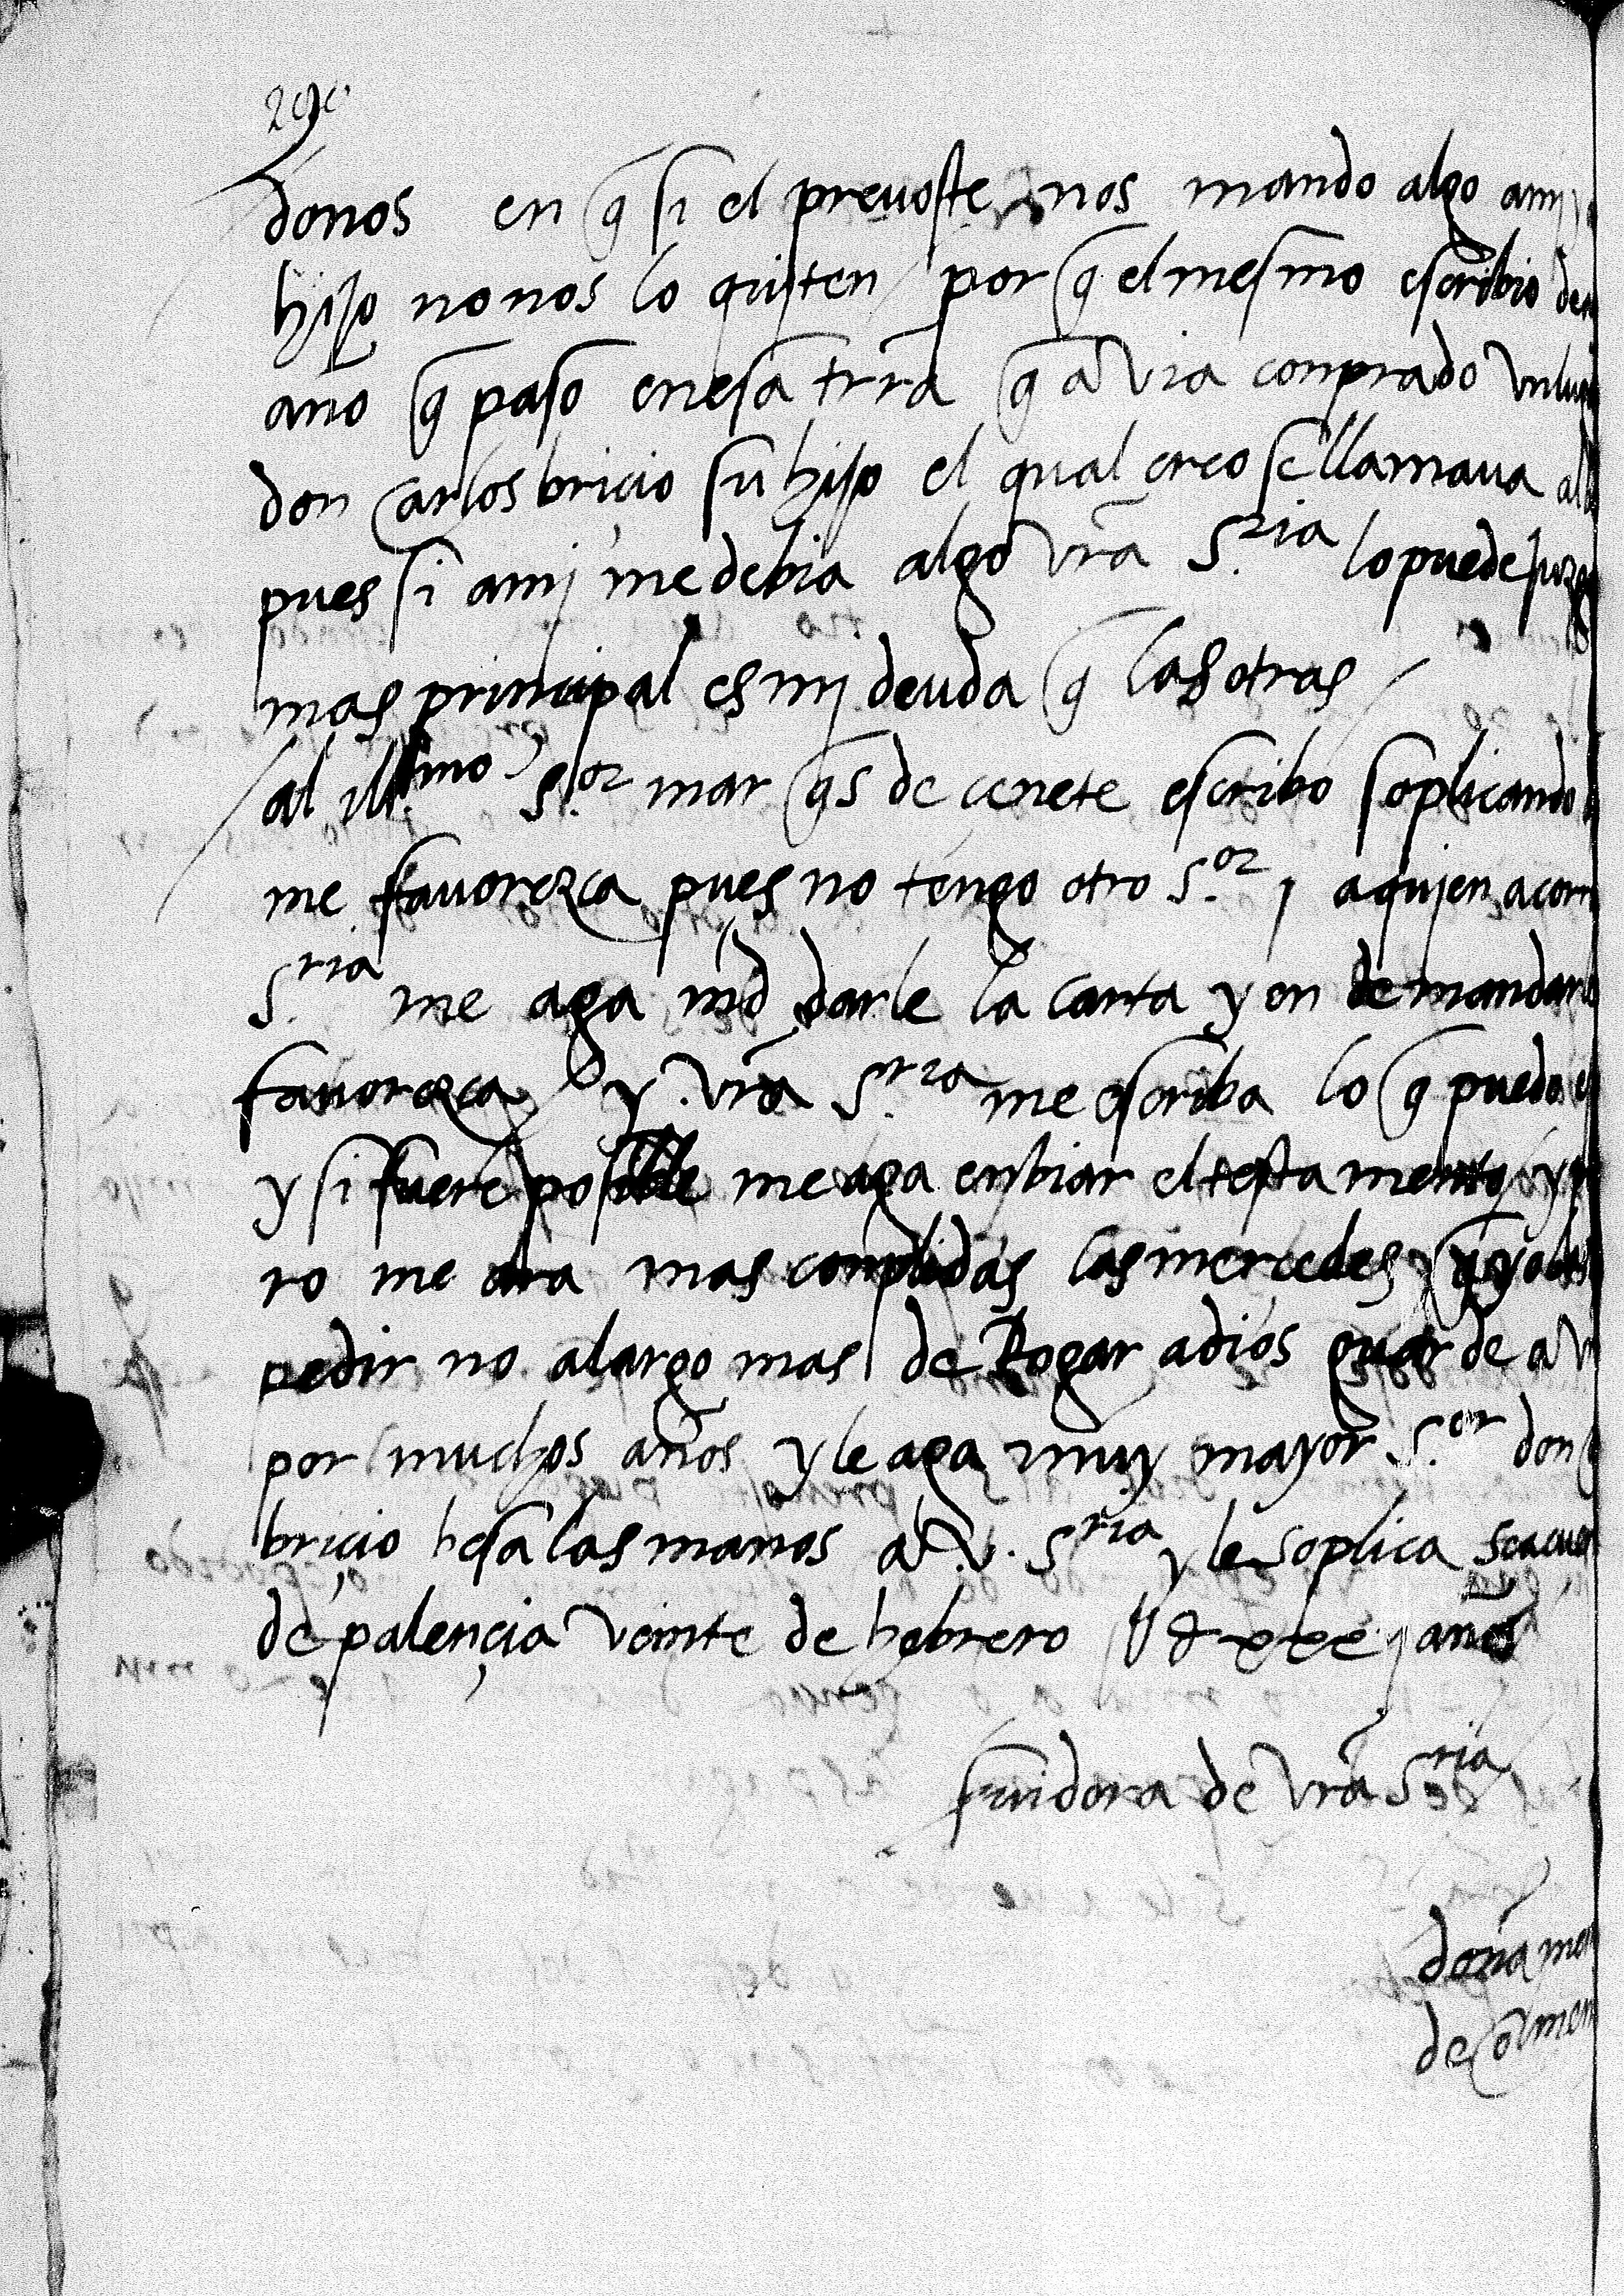 donos en q̃ si el preuoste nos mando algo amj
hijo no nos lo quiten / por q̃ el mesmo escribio
año q̃ paso en esa trr̃a q̃ a via comprado
don carlos bricio su hijo el qual creo se llamaua
pues si amj me debia algo vr̃a S.ria lo puede
mas principal es mj deuda q̃ las otras /
al Ill.mo S.or mar q̃s de cenete escribo soplicando
me fauorezca pues no tengo otro S.or / a qujen
S.ria me aga md̃ darle la carta y en demandar
fauorezca / y vr̃a S.ria me escriba lo q̃ puedo
y si fuere posible me aga enbiar el testamento y
ro me ara mas complidas las mercedes q̃
pedir no alargo mas de Rogar a dios guarde a
por muchos años y le aga muy mayor S.or don
bricio besa las manos a v. S.ria y le soplica
de palençia veinte de hebrero años
seruidora de vr̃a S.ria
doña
de